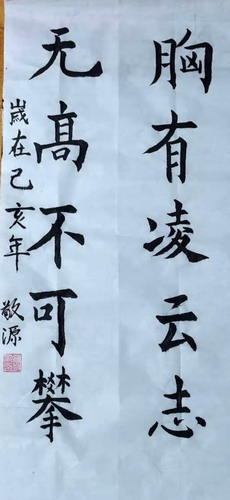 胸有凌云志
无高不可攀
岁在己亥年 敬源